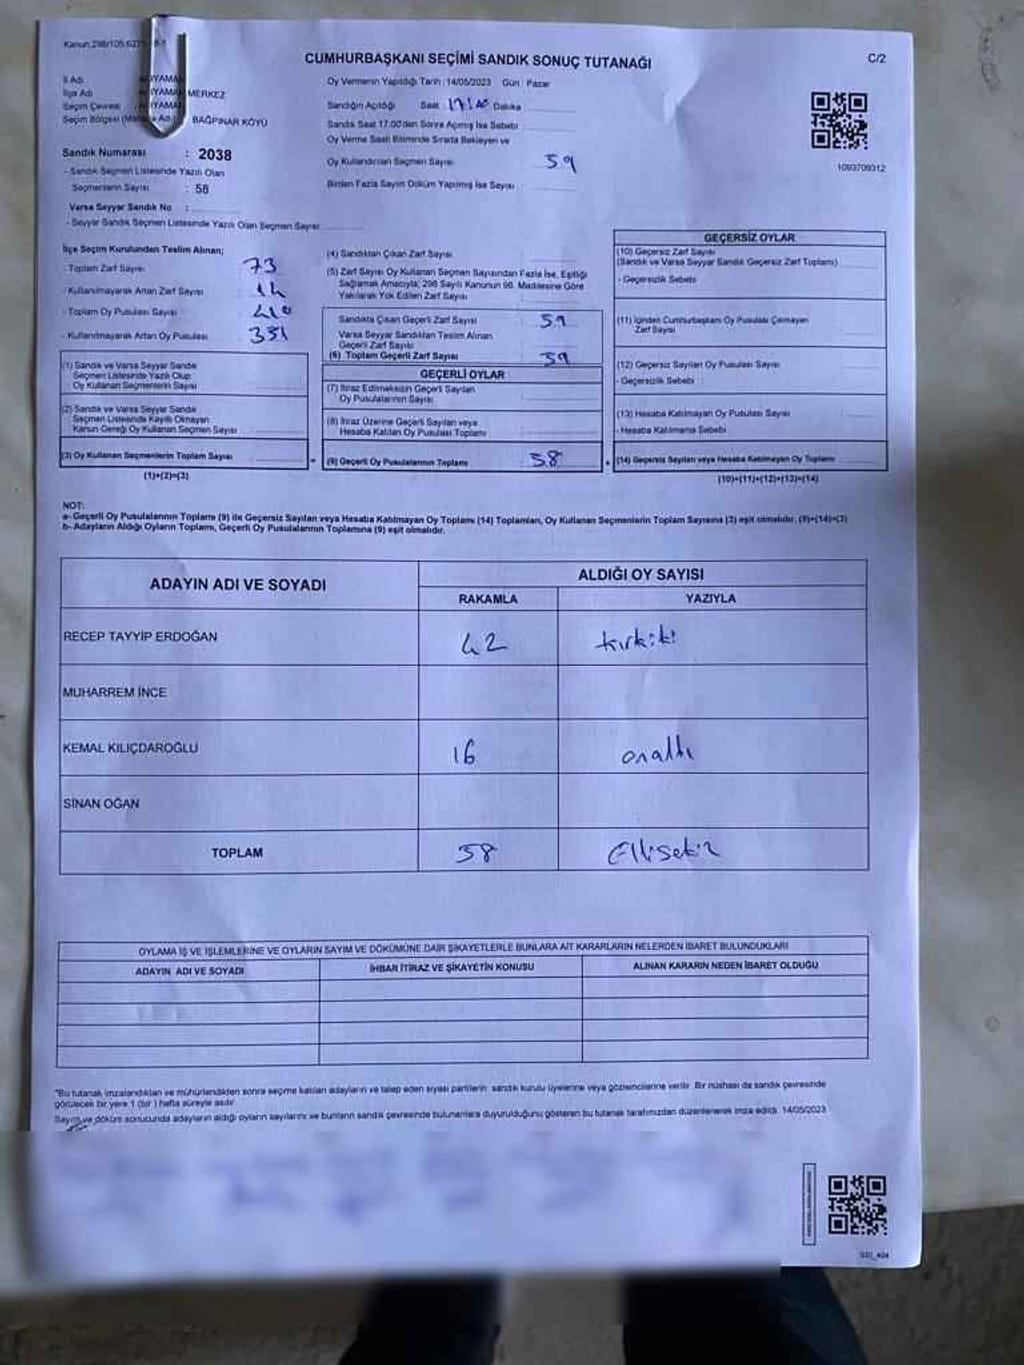 Kanun:298/105,627
CUMHURBAŞKANI SEÇİMİ SANDIK SONUÇ TUTANAĞI
C/2
İl Adı
İlçe Adı MERKEZ
Seçim Çevresi
Seçim Bölgesi BAĞPINAR KÖYÜ
Sandık Numarası : 2038
- Sandık Seçmen Listesinde Yazılı Olan
Seçmenlerin Sayısı : 58
Varsa Seyyar Sandık No :
- Seyyar Sandık Seçmen Listesinde Yazılı Olan Seçmen Sayısı
Oy Vermenin Yapıldığı Tarih :14/05/2023 Gün : Pazar
Sandığın Açıldığı Saat Dakika
Sandık Saat 17.00'den Sonra Açımış İse Sebebi
Oy Verme Saati Bitiminde Sırada Bekleyen ve
Oy Kullandırılan Seçmen Sayısı 59
Birden Fazla Sayım Döküm Yapılmış İse Sayısı
1093709312
İlçe Seçim Kurulundan Teslim Alınan;
- Toplam Zarf Sayısı 73
- Kullanılmayarak Artan Zarf Sayısı 14
- Toplam Oy Pusulası Sayısı 410
- Kullanılmayarak Artan Oy Pusulası 351
(1) Sandık ve Varsa Seyyar Sandık
Seçmen Listesinde Yazılı Olup
Oy Kullanan Seçmenlerin Sayısı
(2) Sandık ve Varsa Seyyar Sandık
Seçmen Listesinde Kayıtlı Olmayan
Kanun Gereği Oy Kullanan Seçmen Sayısı
(3) Oy Kullanan Seçmenlerin Toplam Sayısı
(1)+(2)=(3)
(4) Sandıktan Çıkan Zarf Sayısı
(5) Zarf Sayısı Oy Kullanan Seçmen Sayısından Fazla İse, Eşitliği
Sağlamak Amacıyla; 298 Sayılı Kanunun 98. Maddesine Göre
Yakılarak Yok Edilen Zarf Sayısı
Sandıkta Çıkan Geçerli Zarf Sayısı 59
Varsa Seyyar Sandıktan Teslim Alınan
Geçerli Zarf Sayısı
(6) Toplam Geçerli Zarf Sayısı 59
GEÇERLİ OYLAR
(7) İtiraz Edilmeksizin Geçerli Sayılan
Oy Pusulalarının Sayısı
(8) İtiraz Üzerine Geçerli Sayılan veya
Hesaba Katılan Oy Pusulası Toplamı
(9) Geçerli Oy Pusulalarının Toplamı 58
GEÇERSİZ OYLAR
(10) Geçersiz Zarf Sayısı
(Sandık ve Varsa Seyyar Sandık Geçersiz Zarf Toplamı)
- Geçersizlik Sebebi
(11) İçinden Cumhurbaşkanı Oy Pusulası Çıkmayan
Zarf Sayısı
(12) Geçersiz Sayılan Oy Pusulası Sayısı
- Geçersizlik Sebebi :
(13) Hesaba Katılmayan Oy Pusulası Sayısı
- Hesaba Katılmama Sebebi
(14) Geçersiz Sayılan veya Hesaba Katılmayan Oy Toplamı
(10)+(11)+(12)+(13)=(14)
NOT:
a- Geçerli Oy Pusulalarının Toplamı (9) ile Geçersiz Sayılan veya Hesaba Katılmayan Oy Toplamı (14) Toplamları, Oy Kullanan Seçmenlerin Toplam Sayısına (3) eşit olmalıdır. (9)+(14)=(3)
b- Adayların Aldığı Oyların Toplamı, Geçerli Oy Pusulalarının Toplamına (9) eşit olmalıdır.
ADAYIN ADI VE SOYADI
ALDIĞI OY SAYISI
RAKAMLA YAZIYLA
RECEP TAYYİP ERDOĞAN 42 kırkiki
MUHARREM İNCE
KEMAL KILIÇDAROĞLU 16 onaltı
SİNAN OĞAN
TOPLAM 58 Ellisekiz
OYLAMA İŞ VE İŞLEMLERİNE VE OYLARIN SAYIM VE DÖKÜMÜNE DAİR ŞİKAYETLERLE BUNLARA AİT KARARLARIN NELERDEN İBARET BULUNDUKLARI
ADAYIN ADI VE SOYADI
İHBAR İTİRAZ VE ŞİKAYETİN KONUSU
ALINAN KARARIN NEDEN İBARET OLDUĞU
"Bu tutanak imzalandıktan ve mühürlendikten sonra seçime katılan adayların ve talep eden siyasi partilerin sandık kurulu üyelerine veya gözlemcilerine verilir. Bir nüshası da sandık çevresinde
görülecek bir yere 1 (bir ) hafta süreyle asılır.
Sayım ve döküm sonucunda adayların aldığı oyların sayılarını ve bunların sandık çevresinde bulunanlara duyurulduğunu gösteren bu tutanak tarafımızdan düzenlenerek imza edildi. 14/05/2023